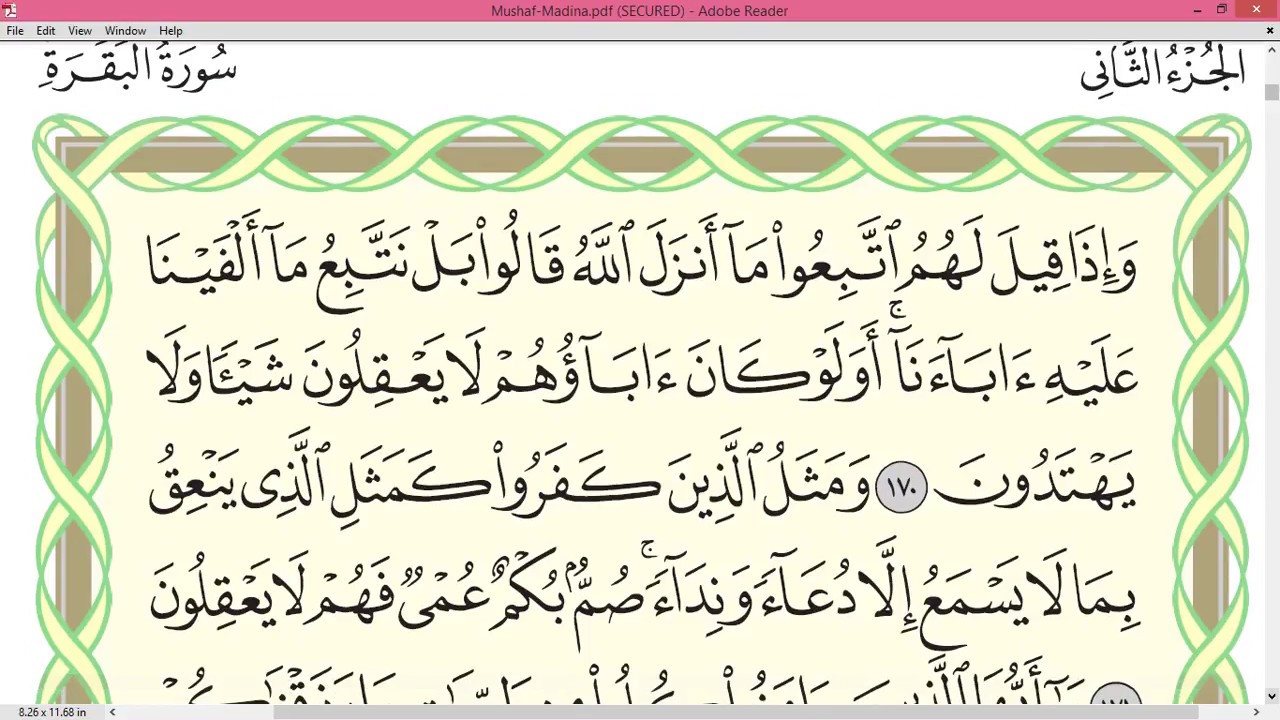 Mushaf-Madina.pdf (SECURED) - Adobe Reader
File Edit View Window Help
الجُزْءُ الثَّانِى سُورَةُ البَقَرَةِ
وَإِذَا قِيلَ لَهُمُ ٱتَّبِعُوا۟ مَآ أَنزَلَ ٱللَّهُ قَالُوا۟ بَلْ نَتَّبِعُ مَآ أَلْفَيْنَا
عَلَيْهِ ءَابَآءَنَآ ۚ أَوَلَوْ كَانَ ءَابَآؤُهُمْ لَا يَعْقِلُونَ شَيْـًٔا وَلَا
يَهْتَدُونَ ١٧٠ وَمَثَلُ ٱلَّذِينَ كَفَرُوا۟ كَمَثَلِ ٱلَّذِى يَنْعِقُ
بِمَا لَا يَسْمَعُ إِلَّا دُعَآءً وَنِدَآءً ۚ صُمٌّۢ بُكْمٌ عُمْىٌ فَهُمْ لَا يَعْقِلُونَ
8.26 x 11.68 in